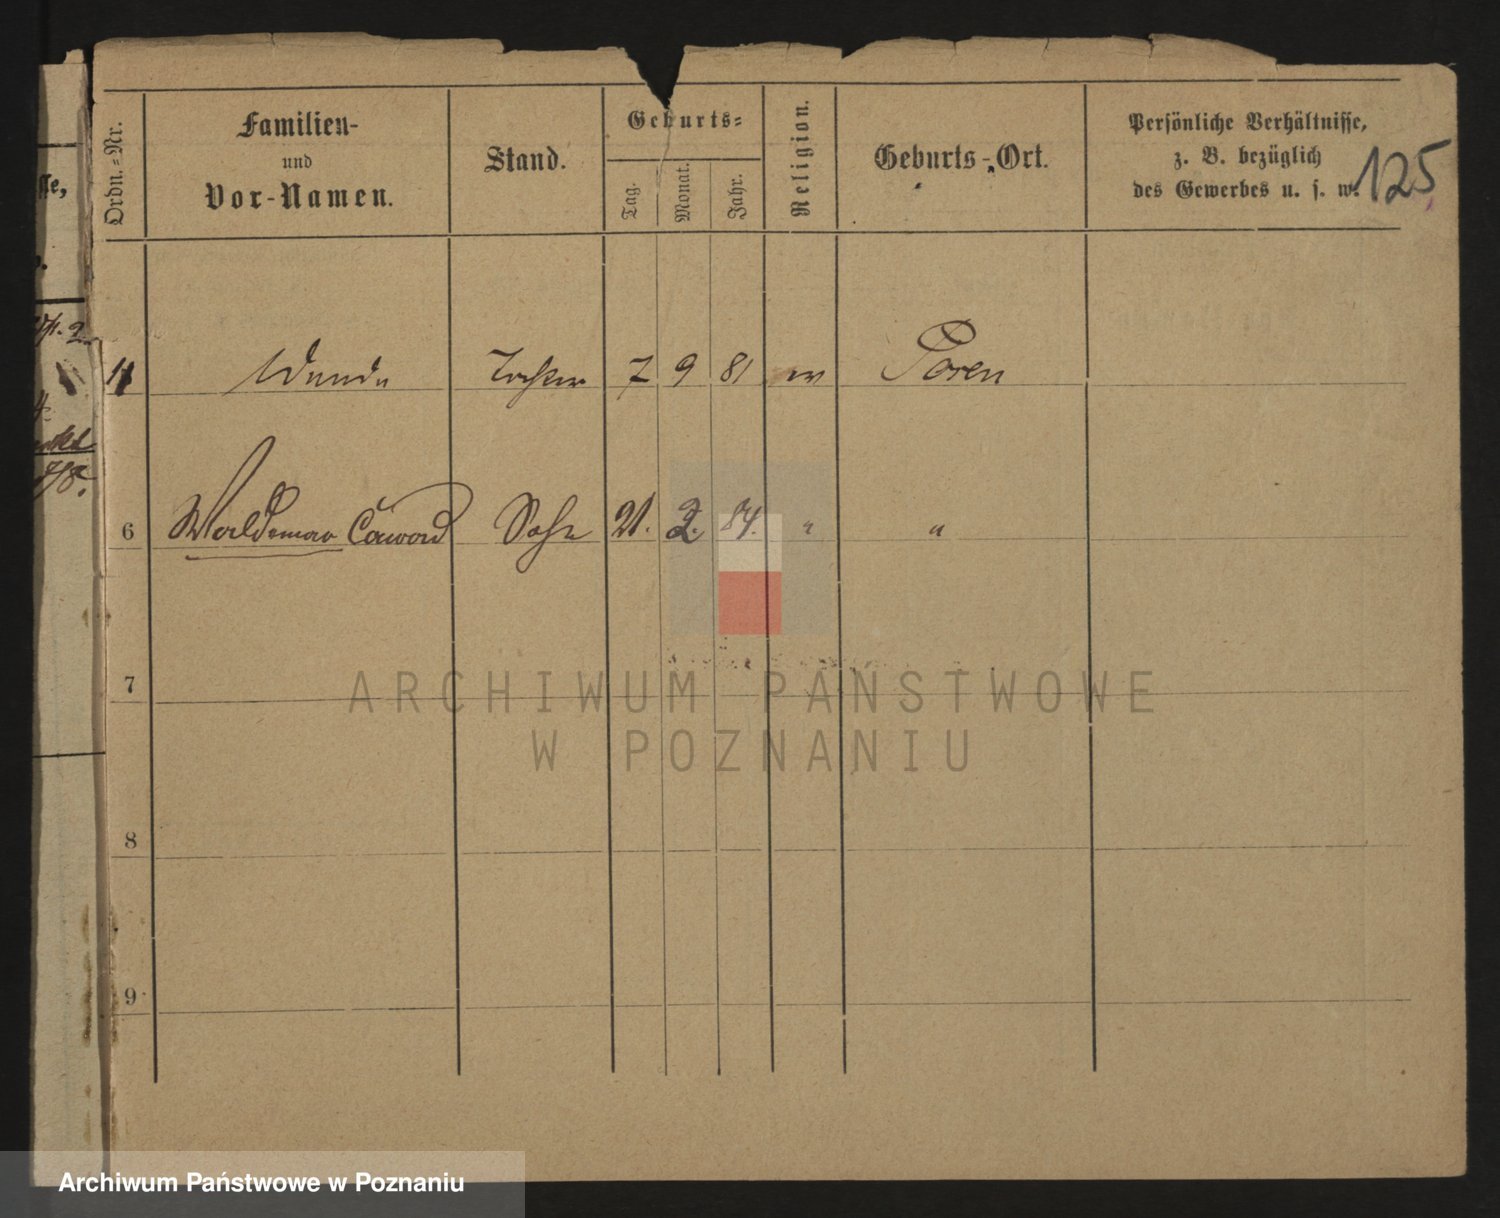 Ordn.-Nr.
Familien-
und
Vor-Namen.
Stand.
Geburts-
Tag.
Monat.
Jahr.
Religion.
Geburts-Ort.
Persönliche Verhältnisse,
z. B. bezüglich
des Gewerbes u. s. w.
125
Wanda Tochter 7 9 81 ev Posen
6 Waldemar Eduard Sohn 21. 2. 84. " "
7
ARCHIWUM PAŃSTWOWE
W POZNANIU
8
9
Archiwum Państwowe w Poznaniu